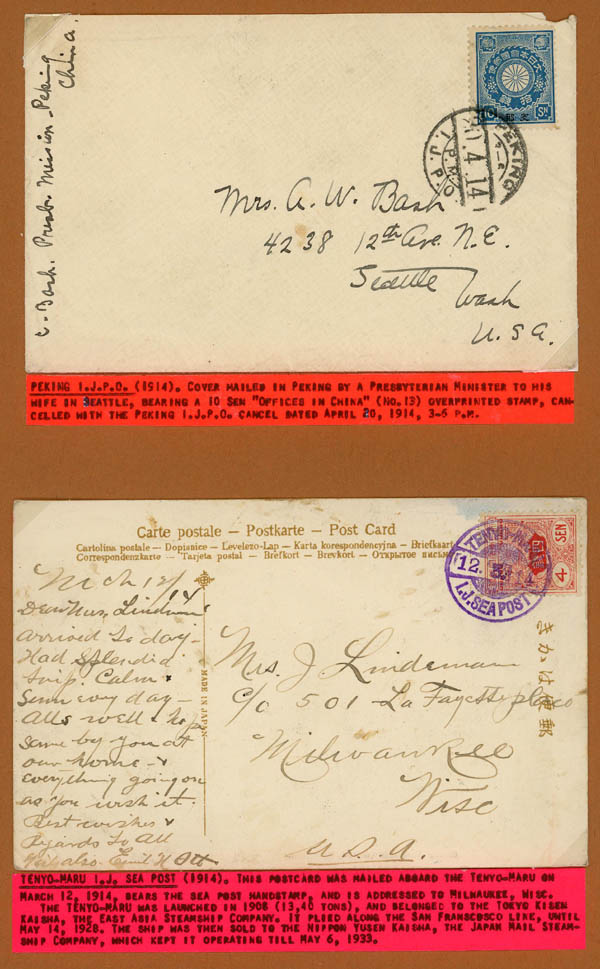 C. Bash. Presb. Mission - Peking
China.
10 SN
支那
PEKING
20.4.14
I.J.P.O.
Mrs. A. W. Bash
4238 12th Ave. N.E.
Seattle
Wash
U.S.A.
PEKING I.J.P.O. (1914). COVER MAILED IN PEKING BY A PRESBYTERIAN MINISTER TO HIS
WIFE IN SEATTLE, BEARING A 10 SEN "OFFICES IN CHINA" (NO.13) OVERPRINTED STAMP, CAN-
CELLED WITH THE PEKING I.J.P.O. CANCEL DATED APRIL 20, 1914, 3-6 P.M.
Carte postale – Postkarte – Post Card
Cartolina postale – Dopisnice – Levelezo-Lap – Karta korespondencyjna – Briefkaart
Correspondenzkarte – Tarjeta postal – Brefkort – Brevkort – Открытое письмо
TENYO-MARU
12. 3. 14
I.J. SEA POST
4 SEN
きかは便郵
MADE IN JAPAN
Mch 12/14
Dear Mrs. Lindeman
Arrived to day –
Had splendid
trip. Calm &
Sunn evry day –
Alls well & hope
same by you at
our home – &
everything going on
as you wish it.
Best wishes &
Regards to All
Mrs. J Lindeman
c/o 501 La Fayette place
Milwaukee
Wisc
U.S.A.
TENYO-MARU I.J. SEA POST (1914). THIS POSTCARD WAS MAILED ABOARD THE TENYO-MARU ON
MARCH 12, 1914, BEARS THE SEA POST HANDSTAMP, AND IS ADDRESSED TO MILWAUKEE, WISC.
THE TENYO-MARU WAS LAUNCHED IN 1908 (13,40 TONS), AND BELONGED TO THE TOKYO KISEN
KAISHA, THE EAST ASIA STEAMSHIP COMPANY. IT PLIED ALONG THE SAN FRANSCBSCO LINE, UNTIL
MAY 14, 1928. THE SHIP WAS THEN SOLD TO THE NIPPON YUSEN KAISHA, THE JAPAN MAIL STEAM-
SHIP COMPANY, WHICH KEPT IT OPERATING TILL MAY 6, 1933.